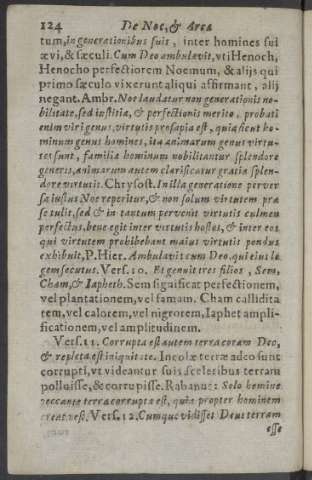 124 De Noe, & Arca
tum, in generationibus suis, inter homines sui
ævi, & sæculi. Cum Deo ambulavit, vti Henoch,
Henocho perfectiorem Noemum, & alijs qui
primo sæculo vixerunt aliqui affirmant, alij
negant. Ambr. Noe laudatur non generationis no-
bilitate, sed iustitia, & perfectionis merito, probati
enim viri genus, virtutis prosapia est, quia sicut ho-
minum genus homines, ita animarum genus virtu-
tes sunt, familiæ hominum nobilitantur splendore
generis, animarum autem clarificatur gratia splen-
dore virtutis. Chrysost. In illa generatione perver
sa iustus Noe reperitur, & non solum virtutem præ
se tulit, sed & in tantum pervenit virtutis culmen
perfectus, bene egit inter virtutis hostes, & inter eos
qui virtutem prohibebant maius virtutis pondus
exhibuit, P. Hier. Ambulavit cum Deo, qui eius le-
gem secutus. Vers. 10. Et genuit tres filios, Sem,
Cham, & Iapheth. Sem significat perfectionem,
vel plantationem, vel famam. Cham callidita
tem, vel calorem, vel nigrorem, Iaphet ampli-
ficationem, vel amplitudinem.
Vers. 11. Corrupta est autem terra coram Deo,
& repleta est iniquitate. Incolæ terræ adeo sunt
corrupti, vt videantur suis sceleribus terram
polluisse, & corrupisse. Rabanus: Solo homine
peccante terra corrupta est, quia propter hominem
creata est. Vers. 12. Cumque vidisset Deus terram
esse